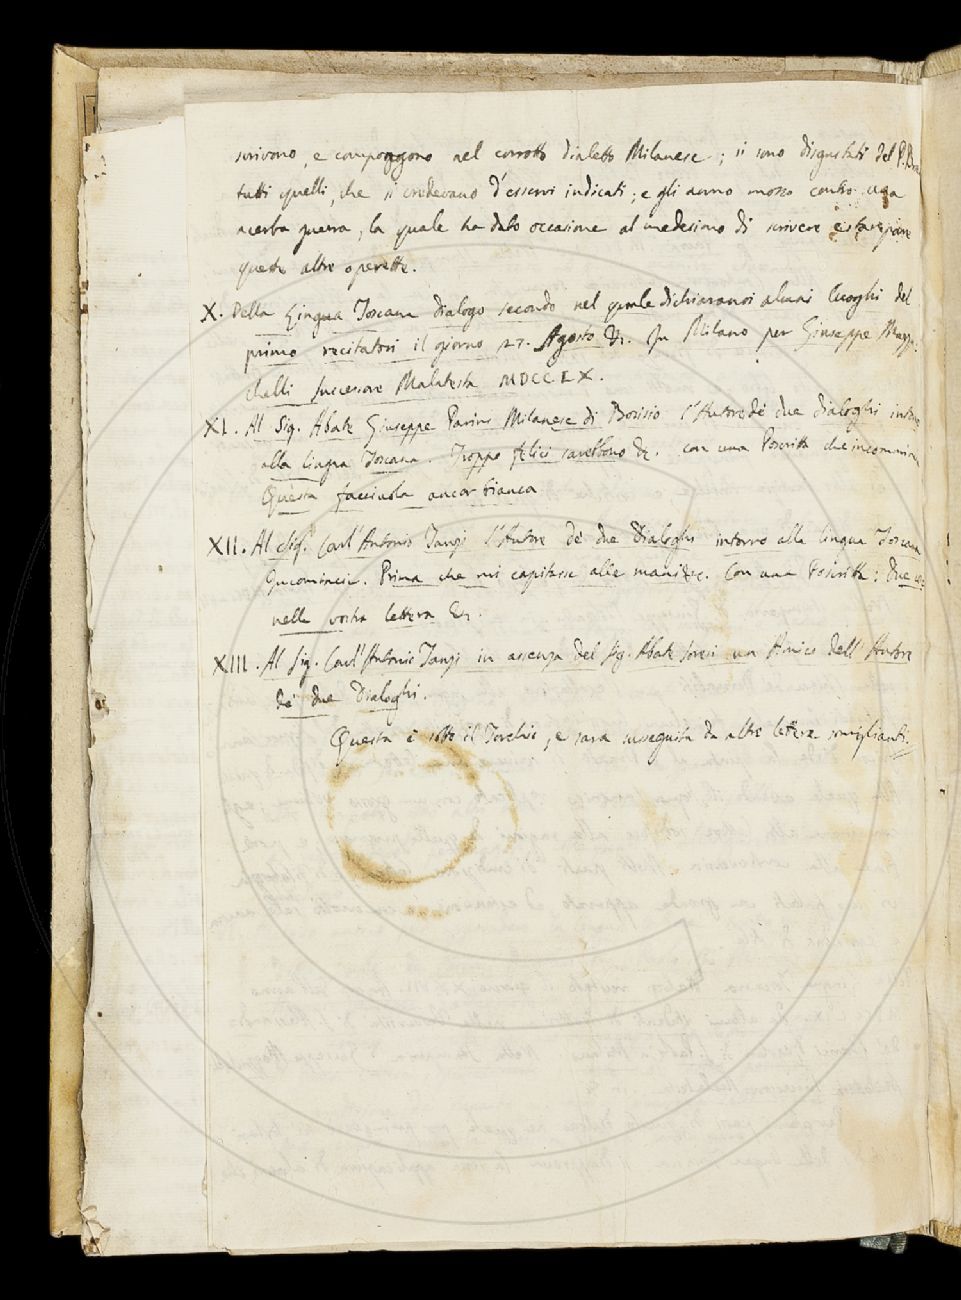 scrivono, e compongono nel corrotto dialetto Milanese; si sono disgustati del P.
tutti quelli, che si credevano d'esservi indicati; e gli anno mosso contro una
acerba guerra, la quale ha dato occasione al medesimo di scrivere e stampare
queste altre operette.
X. Della Lingua Toscana dialogo secondo nel quale dichiaransi alcuni luoghi del
primo recitatosi il giorno 27. Agosto &c. In Milano per Giuseppe Mazzu-
chelli successore Malatesta MDCCLX.
XI. Al Sig. Abate Giuseppe Parini Milanese di Bosisio l'Autore de' due dialoghi intorno
alla lingua Toscana. Troppo felici sarebbono &c. con una Poscritta che incomincia
Questa facciuola ancor bianca
XII. Al Sig. Carl'Antonio Tanzi l'Autore de' due Dialoghi intorno alla lingua Toscana
Incomincia. Prima che mi capitasse alle mani &c. Con una Poscritta: Due
nella vostra lettera &c.
XIII. Al Sig. Carl'Antonio Tanzi in assenza del Sig. Abate Soresi un Amico dell'Autore
de' due Dialoghi.
Questa è sotto il Torchio, e sara susseguita da altre lettere somiglianti.